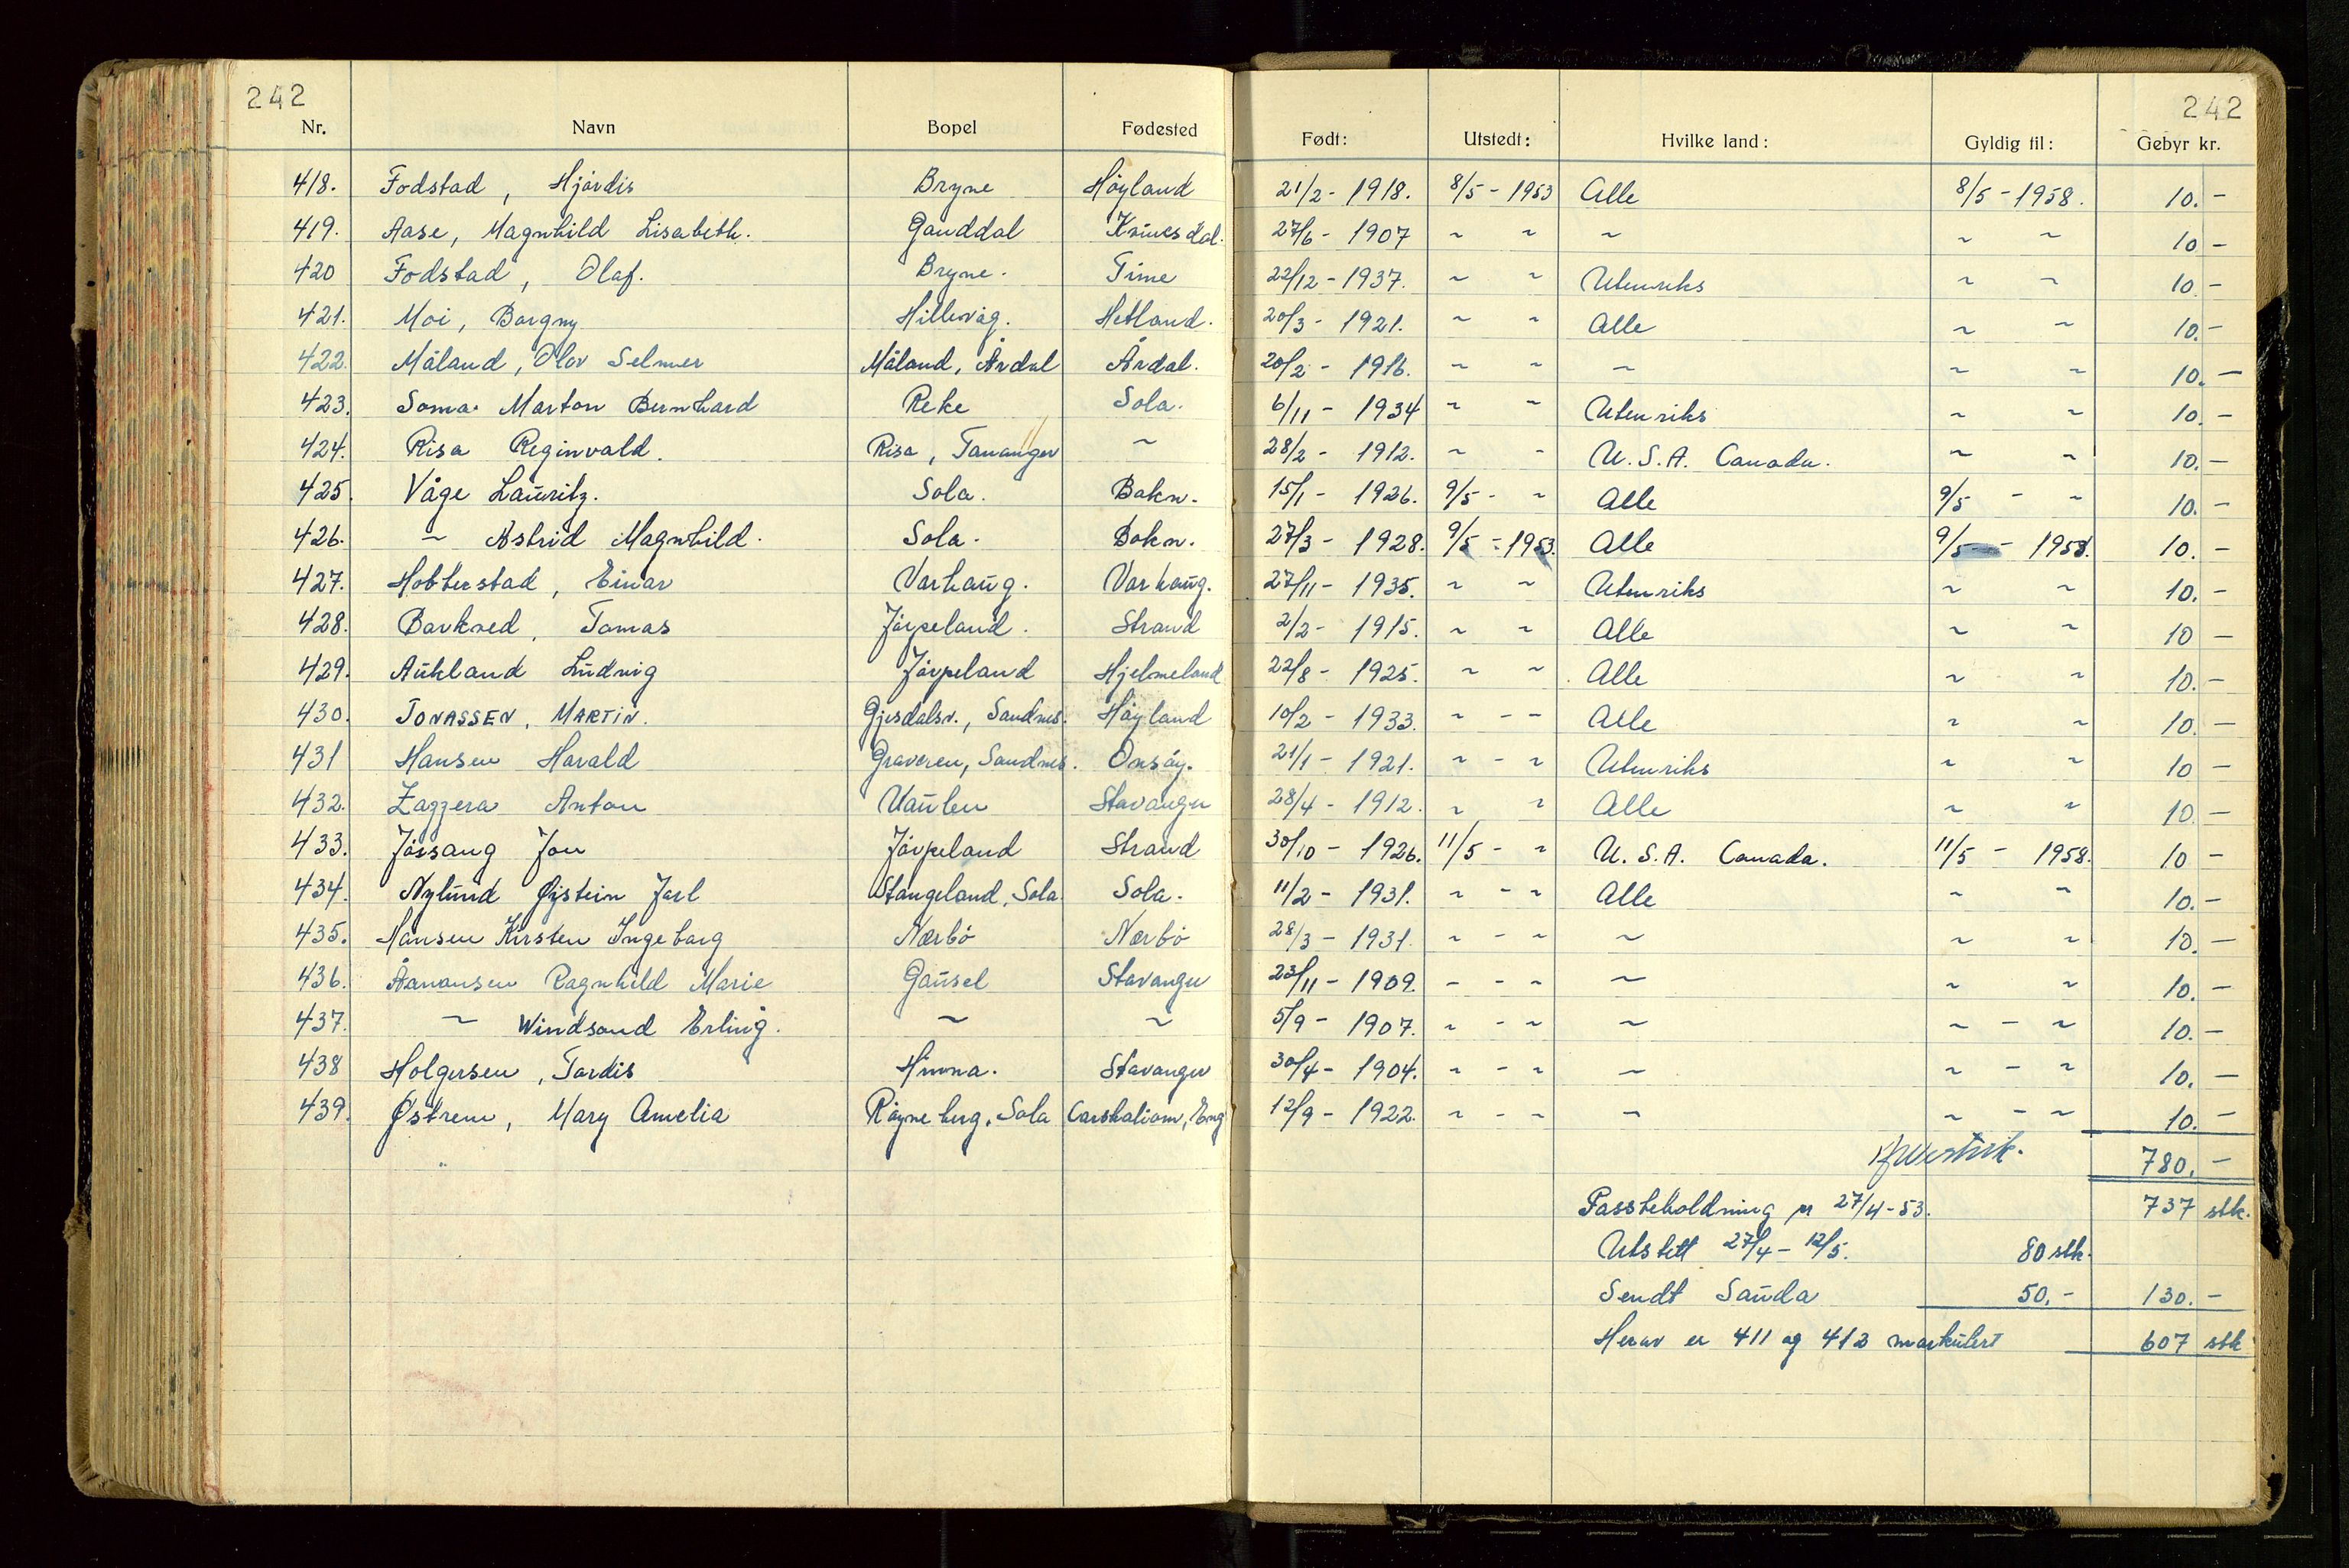 242 242
Nr. Navn Bopel Fødested Født: Utstedt: Hvilke land: Gyldig til: Gebyr kr.
418. Fodstad, Hjördis Bryne Höyland 21/2 - 1918. 8/5 - 1953 Alle 8/5 - 1958. 10. -
419. Aase, Magnhild Lisabeth. Ganddal Kvinesdal. 27/6 - 1907 ~ ~ ~ ~ ~ 10 -
420 Fodstad, Olaf. Bryne. Time 22/12 - 1937. ~ ~ Utenriks ~ ~ 10 -
421. Moi, Borgny Hillevåg. Hetland. 20/3 - 1921. ~ ~ Alle ~ ~ 10. -
422. Måland, Olav Selmer Måland, Årdal Årdal. 20/2 - 1916. ~ ~ ~ ~ ~ 10. -
423. Soma Marton Bernhard Reke Sola. 6/11 - 1934 ~ ~ Utenriks ~ ~ 10. -
424. Risa Reginvald. Risa, Tananger ~ 28/2 - 1912. ~ ~ U.S.A. Canada. ~ ~ 10. -
425. Våge Lauritz. Sola. Bokn. 15/1 - 1926. 9/5 - ~ Alle 9/5 - ~ 10. -
426. ~ Astrid Magnhild. Sola. Bokn. 27/3 - 1928. 9/5 - 1953. Alle 9/5 - 1958. 10. -
427. Hobberstad, Einar Varhaug. Varhaug. 27/11 - 1935. ~ ~ Utenriks ~ ~ 10. -
428. Barkved, Tomas Jörpeland. Strand 2/2 - 1915. ~ ~ Alle ~ ~ 10 -
429. Aukland Ludvig Jörpeland Hjelmeland 22/8 - 1925. ~ ~ Alle ~ ~ 10. -
430. JONASSEN, MARTIN. Gjesdalsv., Sandnes. Höyland 10/2 - 1933. ~ - ~ Alle ~ ~ 10. -
431 Hansen Harald Graveren, Sandnes. Onsöy. 21/1 - 1921. ~ - ~ Utenriks ~ ~ 10 -
432. Zaggera Anton Vaulen Stavanger 28/4 - 1912. ~ ~ Alle ~ ~ 10. -
433. Jössang Jon Jörpeland Strand 30/10 - 1926. 11/5 - ~ U.S.A. Canada. 11/5 - 1958. 10 -
434. Nylund Øystein Jarl Stangeland, Sola Sola. 11/2 - 1931. ~ - ~ Alle ~ ~ 10. -
435. Hansen Kirsten Ingeborg Nærbö Nærbö 28/3 - 1931. ~ - ~ ~ ~ ~ 10. -
436. Åanansen Ragnhild Marie Gausel Stavanger 23/11 - 1909. ~ - ~ ~ ~ ~ 10. -
437. ~ Windsond Erling. ~ ~ 5/9 - 1907. ~ - ~ ~ ~ - ~ 10. -
438 Holgersen, Tordis Hinna. Stavanger 30/4 - 1904. ~ - ~ ~ ~ - ~ 10. -
439. Østrem, Mary Amelia Röyneberg, Sola Carshaltom, Eng 12/9 - 1922. ~ - ~ ~ ~ - ~ 10. -
780. -
Passbeholdning pr 27/4 - 53. 737 stk.
Utstett 27/4 - 12/5. 80 stk.
Sendt Sauda 50. - 130. -
Herav er 411 og 412 markulert 607 stk